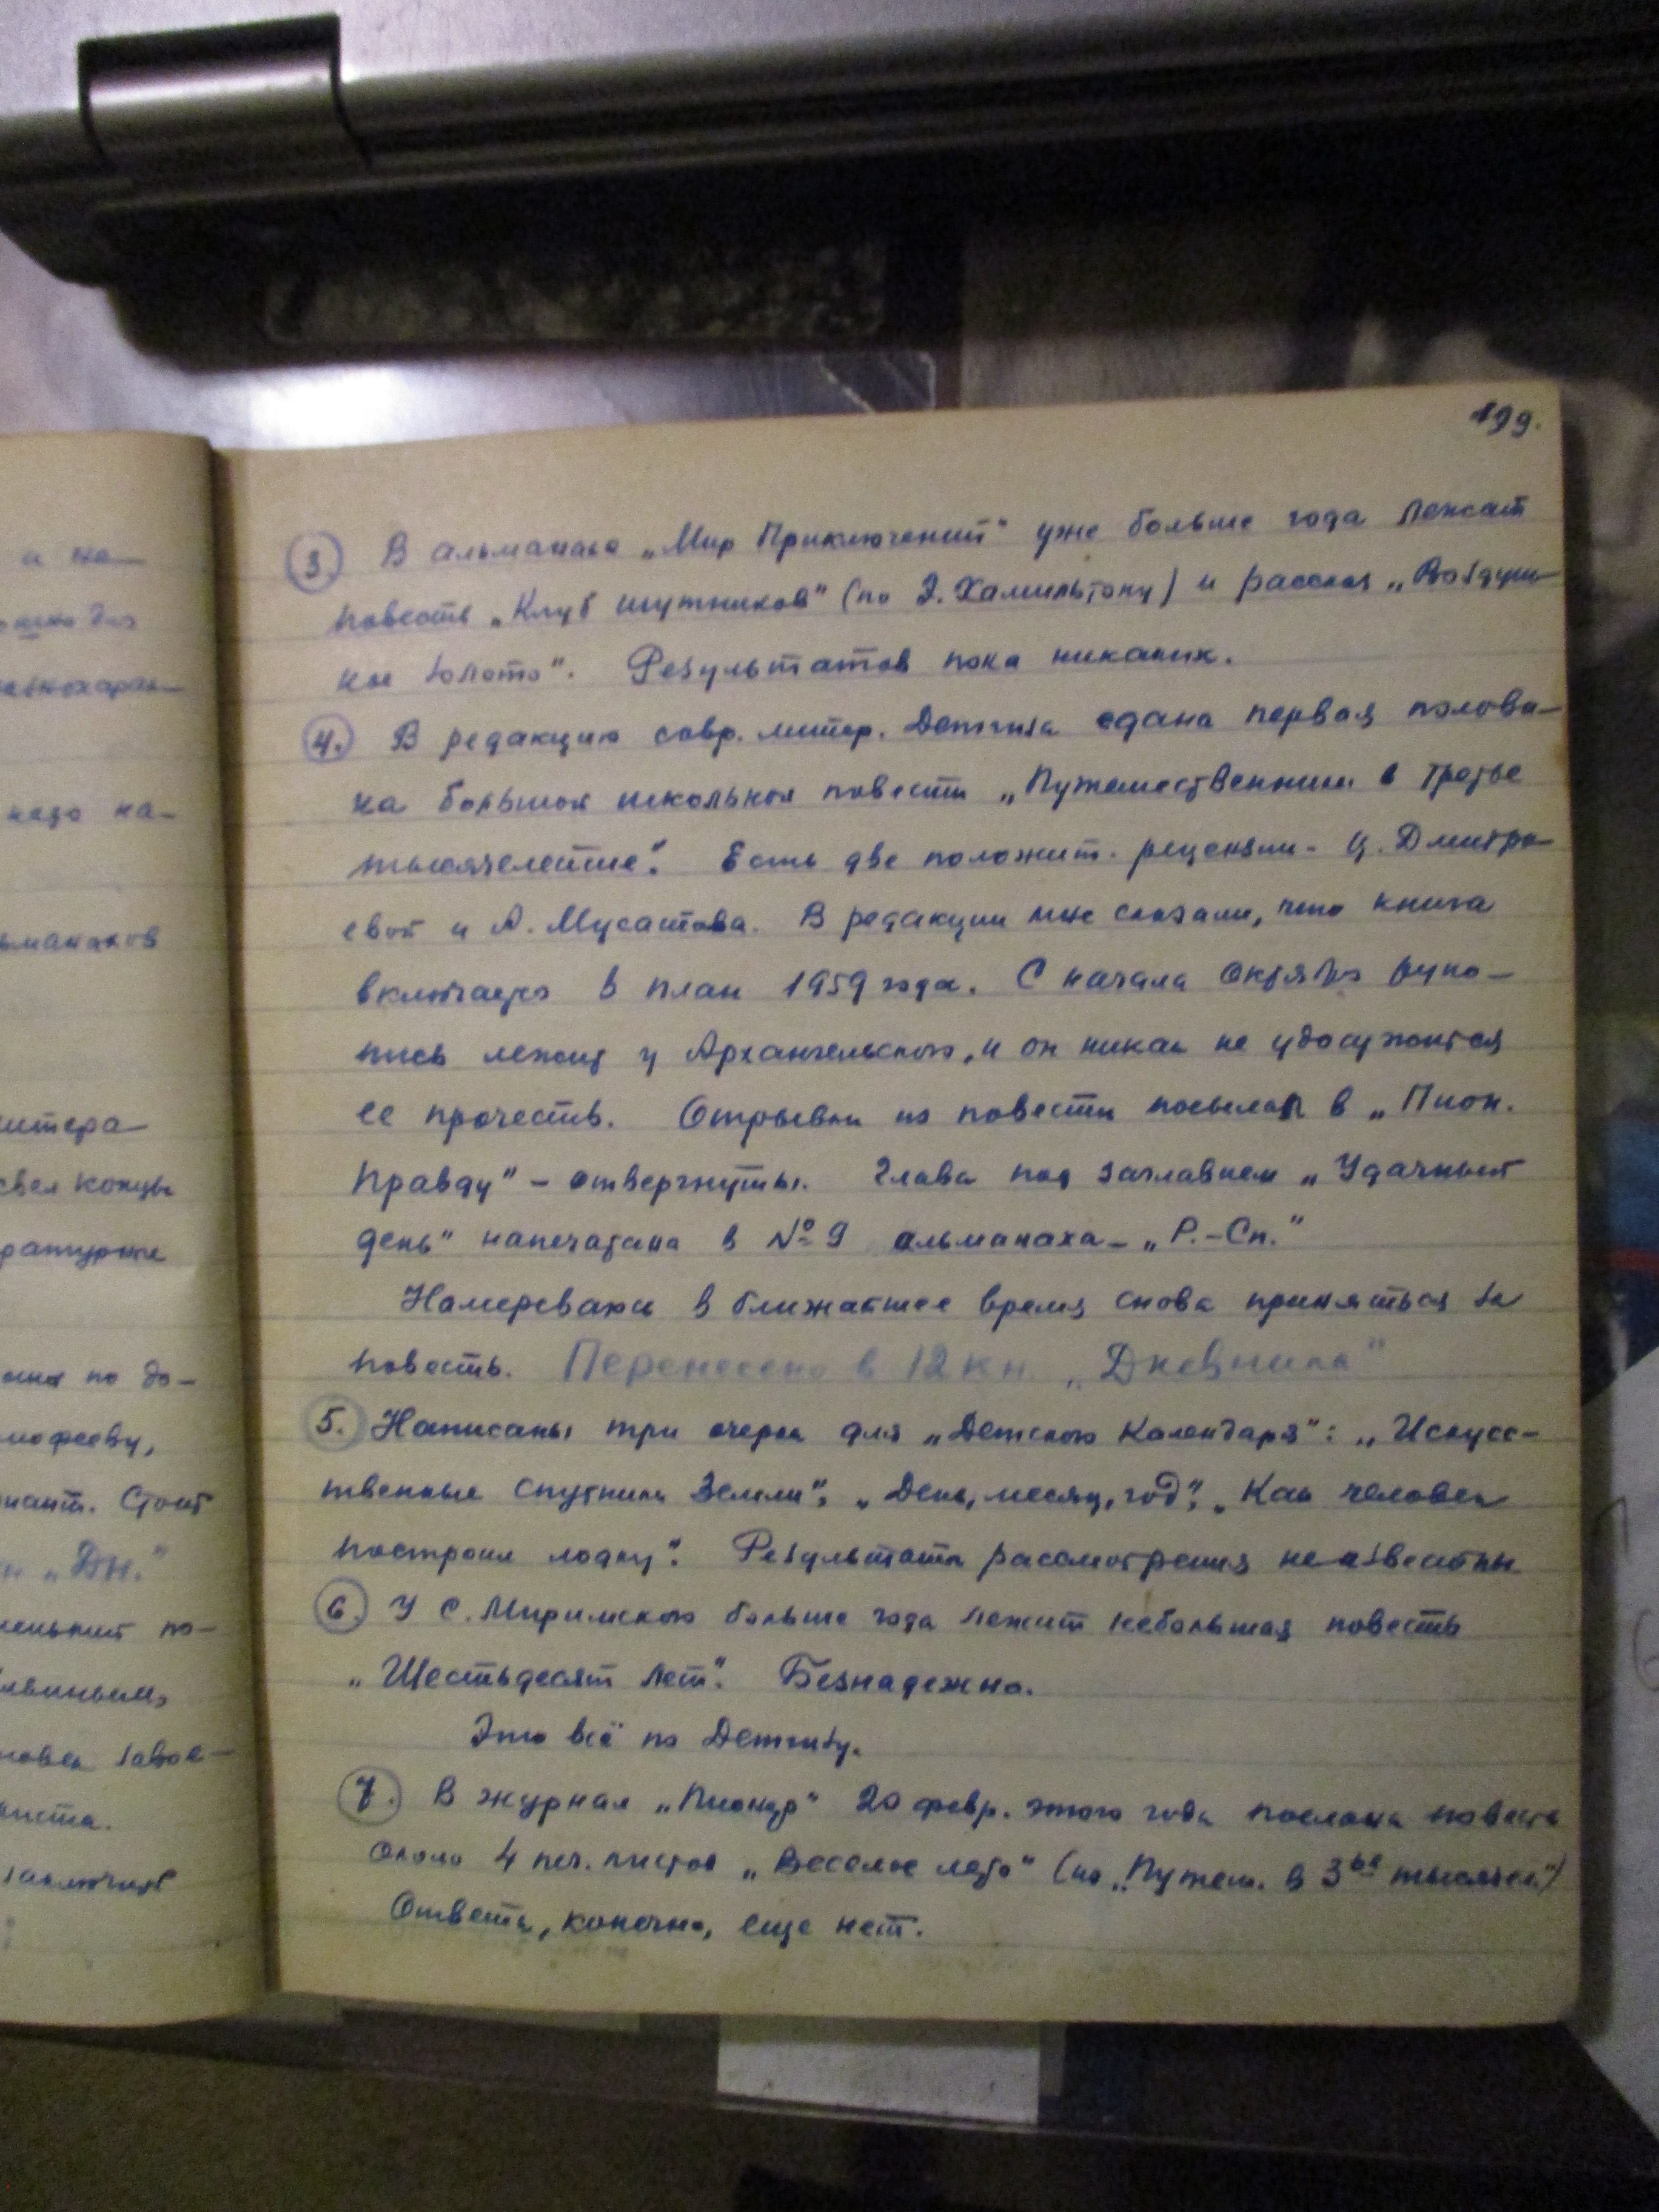 199.
3. В альманахе „Мир Приключений" уже больше года лежат
повесть „Клуб шутников" (по Э. Хамильтону) и рассказ „Воздуш-
ное золото". Результатов пока никаких.
4. В редакцию совр. литер. Детгиза сдана первая полови-
на большой школьной повести „Путешественники в третье
тысячелетие". Есть две положит. рецензии - Ц. Дмитри-
евой и А. Мусатова. В редакции мне сказали, что книга
включается в план 1959 года. С начала октября руко-
пись лежит у Архангельского, и он никак не удосужится
ее прочесть. Отрывки из повести посылал в „Пион.
Правду" - отвергнуты. Глава под заглавием „Удачный
день" напечатана в № 9 альманаха - „Р.-Сп."
Намереваюсь в ближайшее время снова приняться за
повесть. Перенесено в 12 кн. „Дневника"
5. Написаны три очерка для „Детского Календаря": „Искусс-
твенные спутники Земли", „День, месяц, год", „Как человек
построил лодку". Результаты рассмотрения неизвестны
6. У С. Миримского больше года лежит небольшая повесть
„Шестьдесят лет". Безнадежно.
Это всё по Детгизу.
7. В журнал „Пионер" 20 февр. этого года послана повесть
около 4 печ. листов „Веселое лето" (из „Путеш. в 3ье тысячел.")
Ответа, конечно, еще нет.
и не
надо на-
свел концы
по до-
мофееву,
Стоит
„Дн."
по-